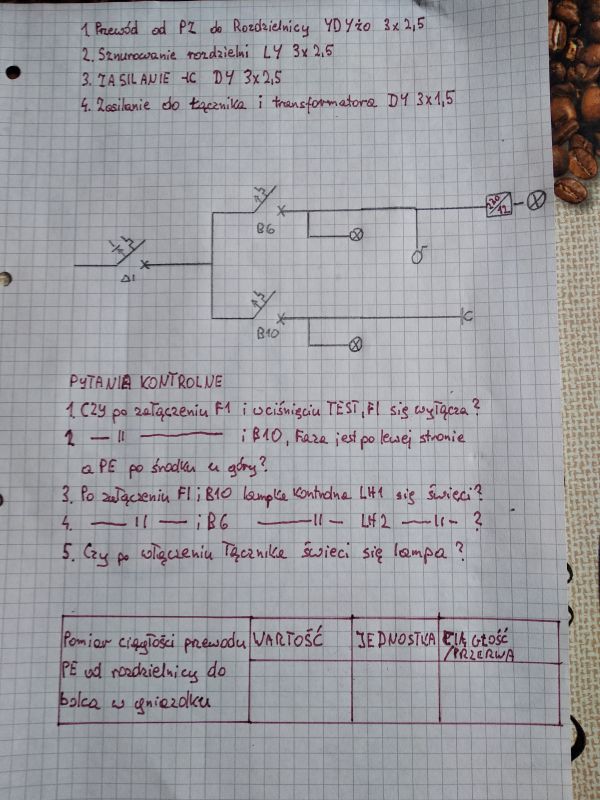 1. Przewód od PZ do Rozdzielnicy YDYżo 3x2,5
2. Sznurowanie rozdzielni LY 3x2,5
3. ZASILANIE -C DY 3x2,5
4. Zasilanie do Łącznika i transformatora DY 3x1,5
B6
220/12
ΔI
B10
PYTANIA KONTROLNE
1. Czy po załączeniu F1 i wciśnięciu TEST, F1 się wyłącza?
2 — 11 ——— i B10, Faza jest po lewej stronie
a PE po środku u góry?
3. Po załączeniu F1 i B10 lampka kontrolna LH1 się świeci?
4. — 11 — i B6 — 11 — LH2 — 11 — ?
5. Czy po włączeniu łącznika świeci się lampa?
Pomiar ciągłości przewodu WARTOŚĆ JEDNOSTKA CIĄGŁOŚĆ
/PRZERWA
PE od rozdzielnicy do
bolca w gniazdku